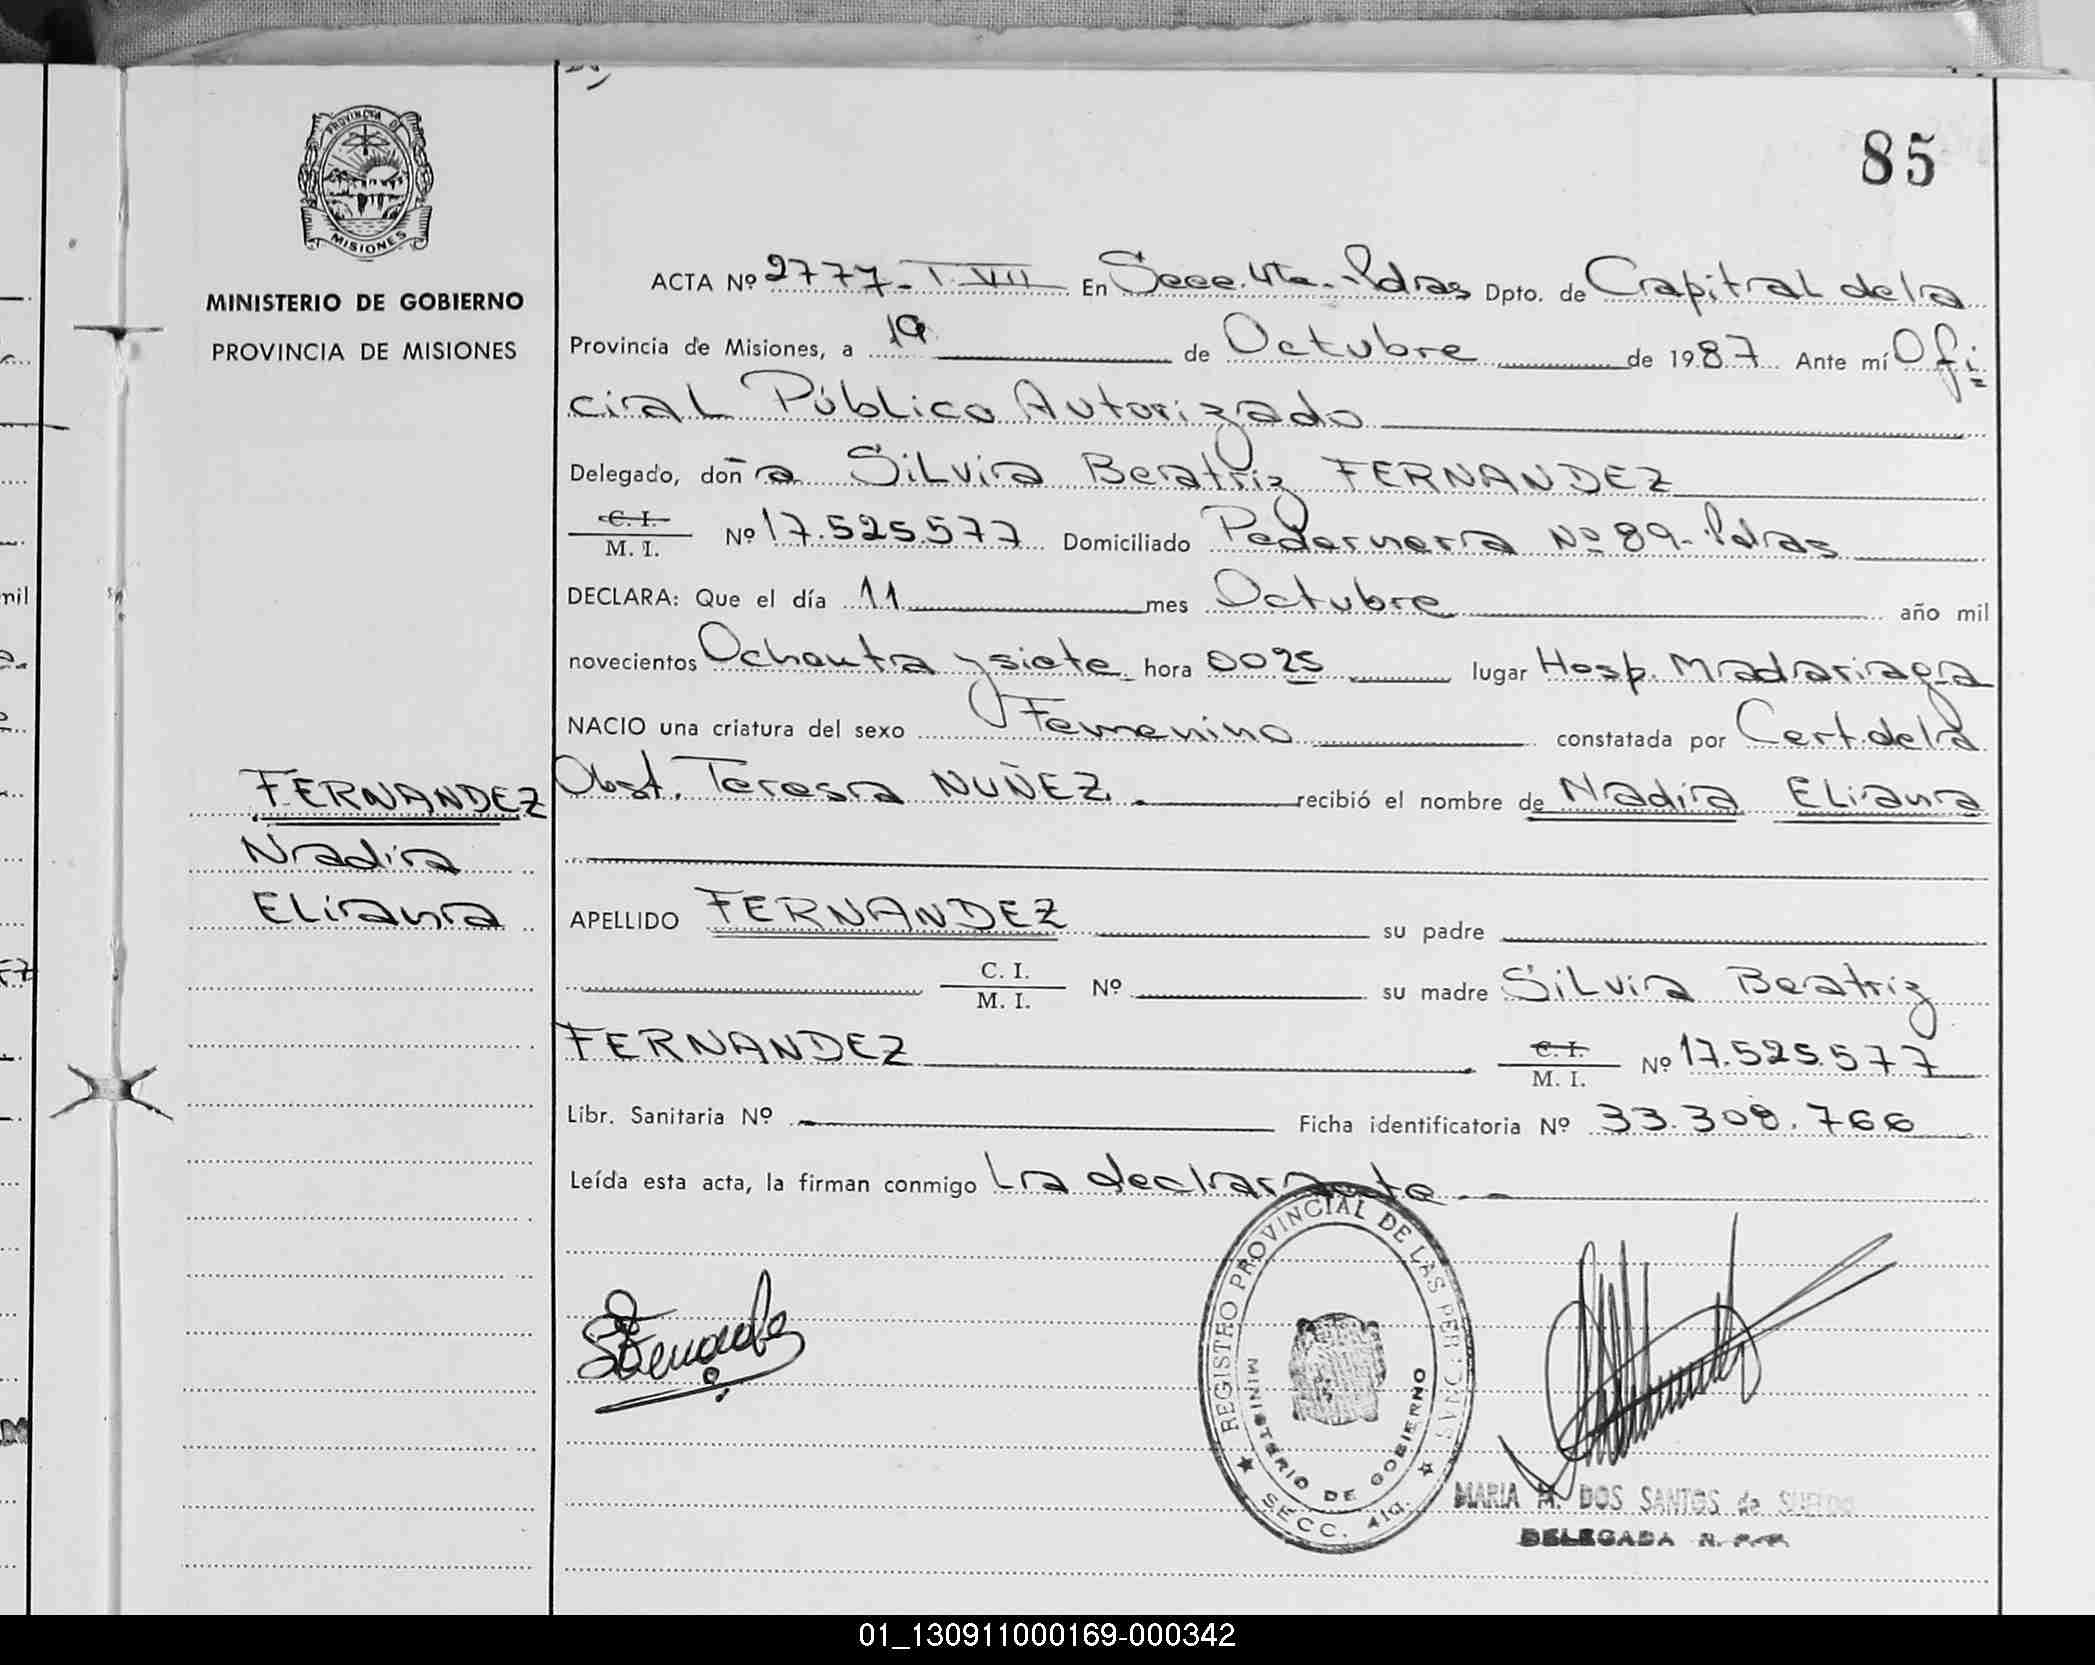 85
PROVINCIA DE
MISIONES
MINISTERIO DE GOBIERNO
PROVINCIA DE MISIONES
ACTA Nº 2777-T-VII En Secc. 4ta. Pdas Dpto. de Capital de la
Provincia de Misiones, a 19 de Octubre de 1987 Ante mí Ofi=
cial Público Autorizado
Delegado, doña Silvia Beatriz FERNANDEZ
C. I.
M. I. Nº 17.525.577 Domiciliado Pedernera Nº 89- Pdas
DECLARA: Que el día 11 mes Octubre año mil
novecientos Ochenta y siete hora 0025 lugar Hosp. Madariaga
NACIO una criatura del sexo Femenino constatada por Cert. de la
Obst. Teresa NUÑEZ. recibió el nombre de Nadia Eliana
FERNANDEZ
Nadia
Eliana
APELLIDO FERNANDEZ su padre
C. I.
M. I. Nº su madre Silvia Beatriz
FERNANDEZ C. I.
M. I. Nº 17.525.577
Libr. Sanitaria Nº Ficha identificatoria Nº 33.308.766
Leída esta acta, la firman conmigo La declarante
REGISTRO PROVINCIAL DE LAS PERSONAS
MINISTERIO DE GOBIERNO
SECC. 4ta.
MARIA M. DOS SANTOS de
DELEGADA R. P. P.
mil
01_130911000169-000342